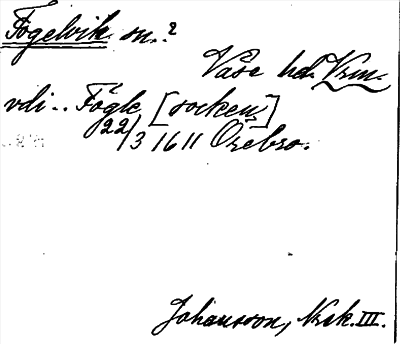 Fögelvik sn.?
Väse hd. Vrm.
vdi.. Fögle [socken]
22/3 1611 Örebro.
Johansson, Nrk. III.